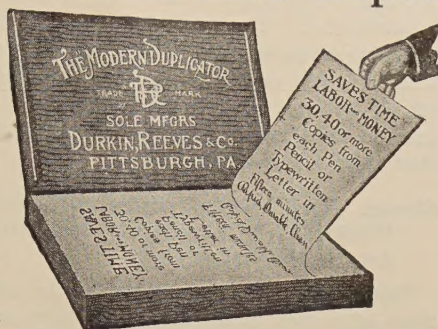 THE MODERN DUPLICATOR
TRADE DR MARK
SOLE MFGRS
DURKIN, REEVES & CO.
PITTSBURGH, PA.
SAVES TIME
LABOR-MONEY
30.40 or more
Copies from
each Pen
Pencil or
Typewritten
Letter in
Fifteen minutes
SAVES TIME
LABOR-MONEY
30.40 or more
Copies from
each Pen
Pencil or
Typewritten
Letter in
Fifteen minutes